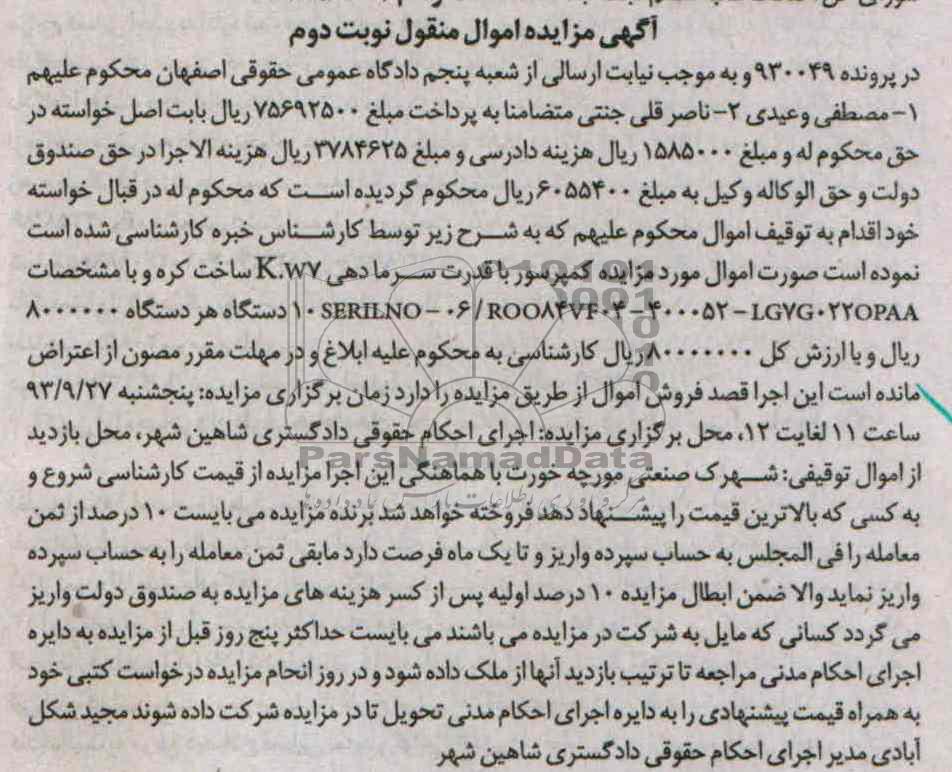 آگهی مزایده اموال منقول نوبت دوم
در پرونده ۹۳۰۰۴۹ و به موجب نیابت ارسالی از شعبه پنجم دادگاه عمومی حقوقی اصفهان محکوم علیهم
۱- مصطفی وعیدی ۲- ناصر قلی جنتی متضامنا به پرداخت مبلغ ۷۵۶۹۲۵۰۰ ریال بابت اصل خواسته در
حق محکوم له و مبلغ ۱۵۸۵۰۰۰ ریال هزینه دادرسی و مبلغ ۳۷۸۴۶۲۵ ریال هزینه الاجرا در حق صندوق
دولت و حق الوکاله وکیل به مبلغ ۶۰۵۵۴۰۰ ریال محکوم گردیده است که محکوم له در قبال خواسته
خود اقدام به توقیف اموال محکوم علیهم که به شرح زیر توسط کارشناس خبره کارشناسی شده است
نموده است صورت اموال مورد مزایده کمپرسور با قدرت سرما دهی K.W۷ ساخت کره و با مشخصات
SERILNO - ۰۶/ROO۸۴VF۰۴-۴۰۰۰۵۲-LG۷G۰۲۲OPAA ۱۰ دستگاه هر دستگاه ۸۰۰۰۰۰۰
ریال و با ارزش کل ۸۰۰۰۰۰۰۰ ریال کارشناسی به محکوم علیه ابلاغ و در مهلت مقرر مصون از اعتراض
مانده است این اجرا قصد فروش اموال از طریق مزایده را دارد زمان برگزاری مزایده: پنجشنبه ۹۳/۹/۲۷
ساعت ۱۱ لغایت ۱۲، محل برگزاری مزایده: اجرای احکام حقوقی دادگستری شاهین شهر، محل بازدید
از اموال توقیفی: شهرک صنعتی مورچه خورت با هماهنگی این اجرا مزایده از قیمت کارشناسی شروع و
به کسی که بالاترین قیمت را پیشنهاد دهد فروخته خواهد شد برنده مزایده می بایست ۱۰ درصد از ثمن
معامله را فی المجلس به حساب سپرده واریز و تا یک ماه فرصت دارد مابقی ثمن معامله را به حساب سپرده
واریز نماید والا ضمن ابطال مزایده ۱۰ درصد اولیه پس از کسر هزینه های مزایده به صندوق دولت واریز
می گردد کسانی که مایل به شرکت در مزایده می باشند می بایست حداکثر پنج روز قبل از مزایده به دایره
اجرای احکام مدنی مراجعه تا ترتیب بازدید آنها از ملک داده شود و در روز انجام مزایده درخواست کتبی خود
به همراه قیمت پیشنهادی را به دایره اجرای احکام مدنی تحویل تا در مزایده شرکت داده شوند مجید شکل
آبادی مدیر اجرای احکام حقوقی دادگستری شاهین شهر
ParsNamadData